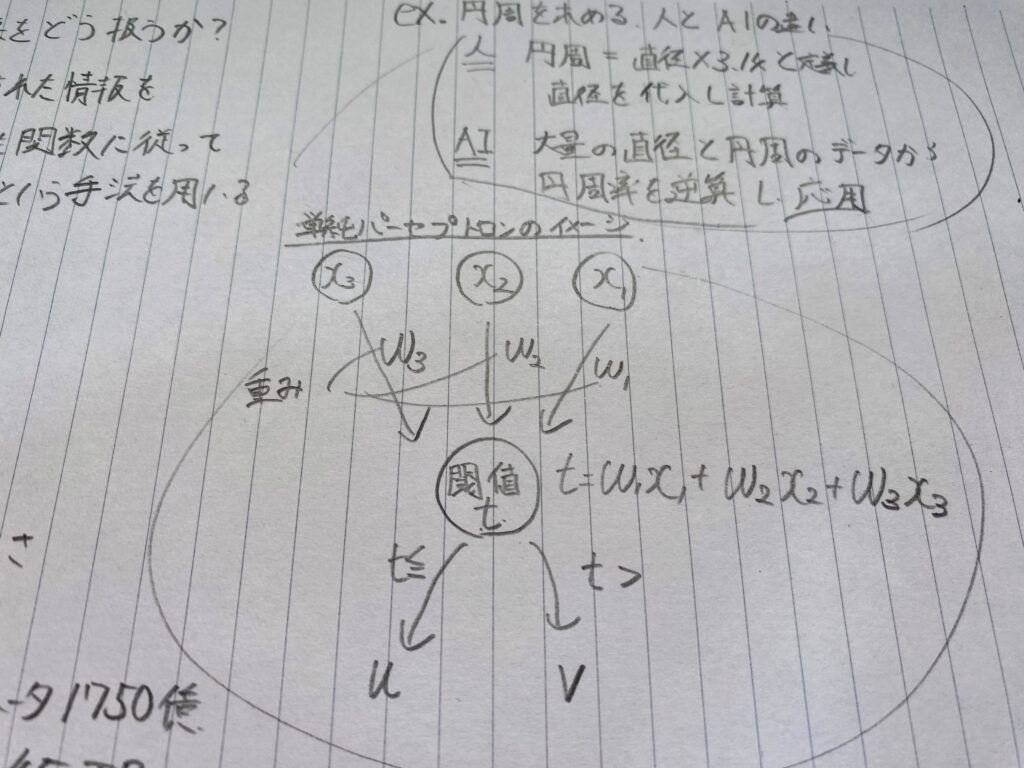 をどう扱うか?
れた情報を
関数に従って
という手法を用いる
ex. 円周を求める 人とAIの違い.
人 円周=直径×3.14と定義し
直径を代入し計算
AI 大量の直径と円周のデータから
円周率を逆算し 応用
単純パーセプトロンのイメージ.
x₃ x₂ x₁
w₃ w₂ w₁
重み
閾値 t
t=w₁x₁+w₂x₂+w₃x₃
t≦ t>
u v
さ
ータ1750億